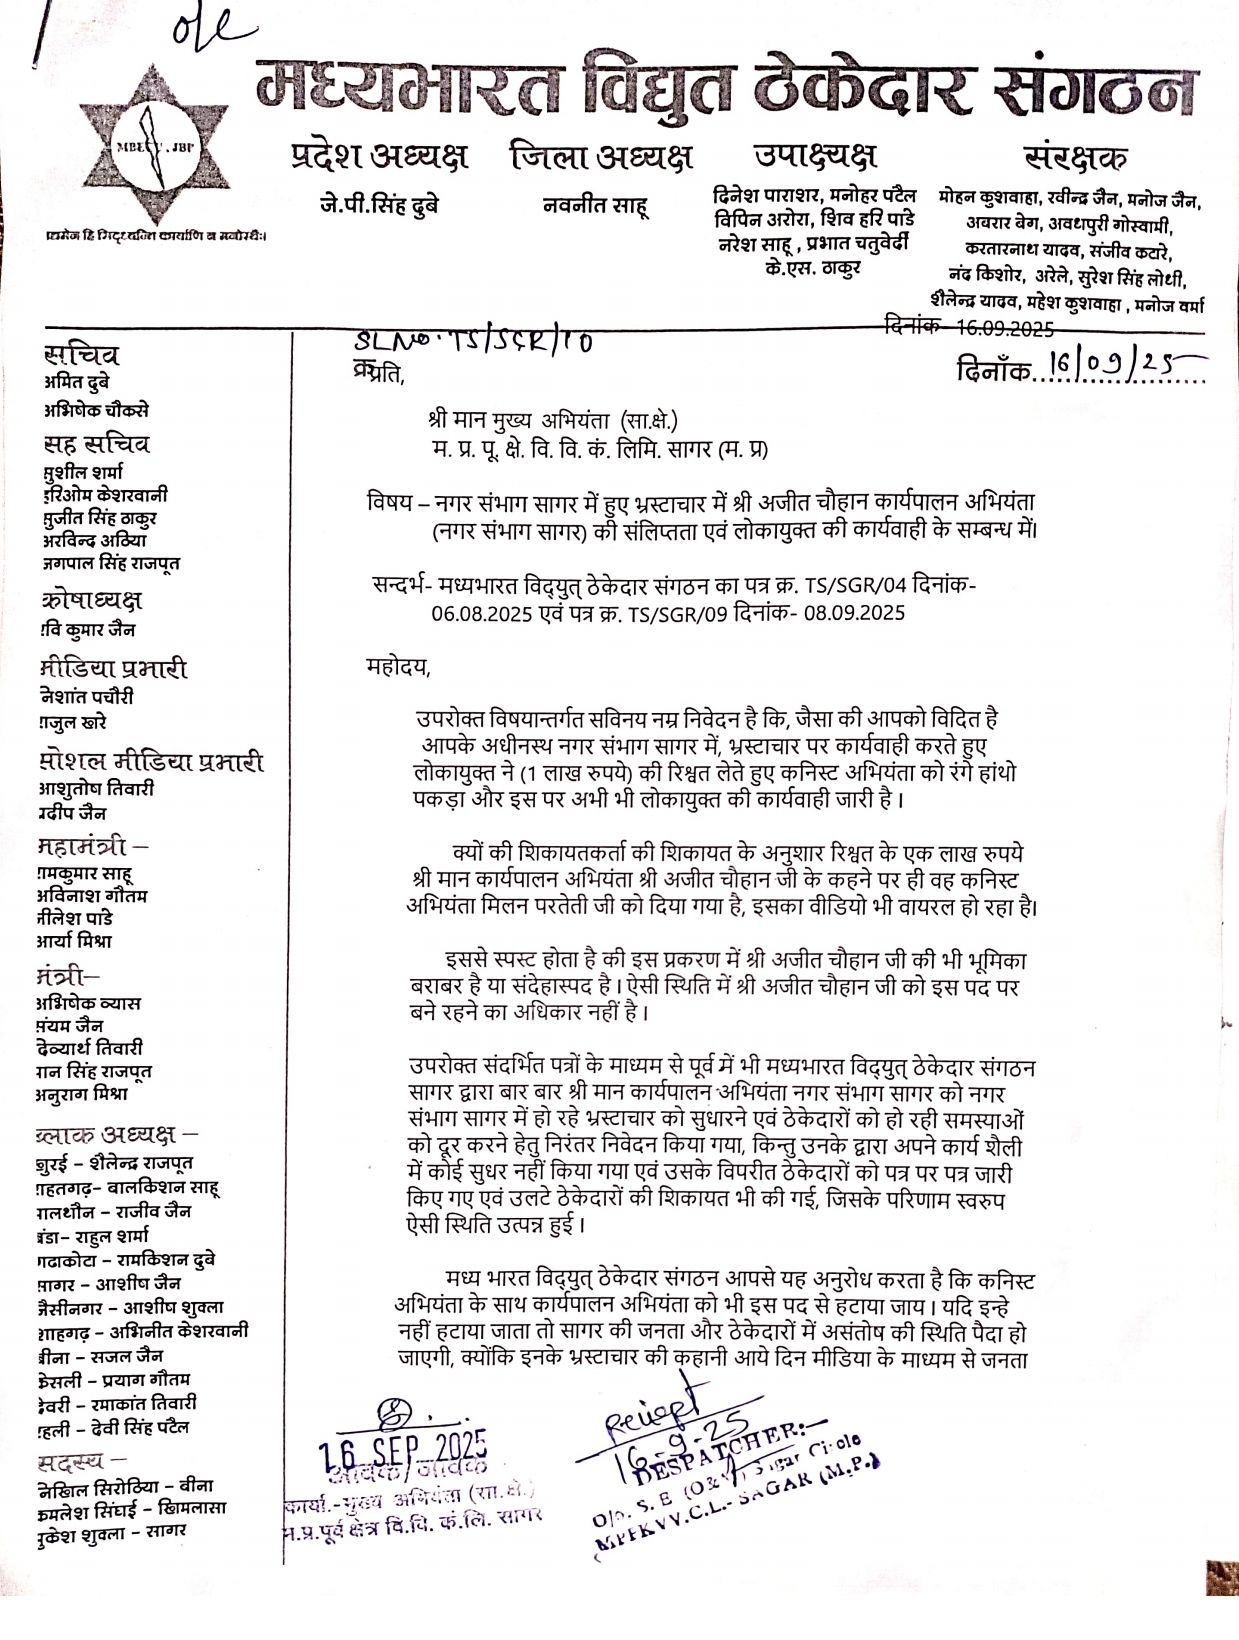 o/c
मध्यभारत विद्युत ठेकेदार संगठन
MBE .JBP
प्रदेश अध्यक्ष
जे.पी.सिंह दुबे
जिला अध्यक्ष
नवनीत साहू
उपाक्ष्यक्ष
दिनेश पाराशर, मनोहर पटैल
विपिन अरोरा, शिव हरि पाडे
नरेश साहू , प्रभात चतुर्वेदी
के.एस. ठाकुर
संरक्षक
मोहन कुशवाहा, रवीन्द्र जैन, मनोज जैन,
अबरार बेग, अवधपुरी गोस्वामी,
करतारनाथ यादव, संजीव कटारे,
नंद किशोर, अरेले, सुरेश सिंह लोधी,
शैलेन्द्र यादव, महेश कुशवाहा , मनोज वर्मा
दिनांक- 16.09.2025
SL No. TS/SGR/10
दिनाँक. 16/09/25
सचिव
अमित दुबे
अभिषेक चौकसे
सह सचिव
सुशील शर्मा
हरिओम केशरवानी
सुजीत सिंह ठाकुर
अरविन्द अठिया
जगपाल सिंह राजपूत
कोषाध्यक्ष
रवि कुमार जैन
मीडिया प्रभारी
नेशांत पचौरी
राजुल खरे
सोशल मीडिया प्रभारी
आशुतोष तिवारी
प्रदीप जैन
महामंत्री –
रामकुमार साहू
अविनाश गौतम
नीलेश पाडे
आर्या मिश्रा
मंत्री–
अभिषेक व्यास
संयम जैन
देव्यार्थ तिवारी
गान सिंह राजपूत
अनुराग मिश्रा
ब्लाक अध्यक्ष –
खुरई – शैलेन्द्र राजपूत
राहतगढ़– बालकिशन साहू
मालथौन – राजीव जैन
बंडा– राहुल शर्मा
गढाकोटा – रामकिशन दुबे
सागर – आशीष जैन
जैसीनगर – आशीष शुक्ला
शाहगढ़ – अभिनीत केशरवानी
बीना – सजल जैन
केसली – प्रयाग गौतम
देवरी – रमाकांत तिवारी
रहली – देवी सिंह पटैल
सदस्य –
नेखिल सिरोठिया – बीना
कमलेश सिंघई – खिमलासा
मुकेश शुक्ला – सागर
प्रति,
श्री मान मुख्य अभियंता (सा.क्षे.)
म. प्र. पू. क्षे. वि. वि. कं. लिमि. सागर (म. प्र)
विषय – नगर संभाग सागर में हुए भ्रस्टाचार में श्री अजीत चौहान कार्यपालन अभियंता
(नगर संभाग सागर) की संलिप्तता एवं लोकायुक्त की कार्यवाही के सम्बन्ध में।
सन्दर्भ- मध्यभारत विद्युत् ठेकेदार संगठन का पत्र क्र. TS/SGR/04 दिनांक-
06.08.2025 एवं पत्र क्र. TS/SGR/09 दिनांक- 08.09.2025
महोदय,
उपरोक्त विषयान्तर्गत सविनय नम्र निवेदन है कि, जैसा की आपको विदित है
आपके अधीनस्थ नगर संभाग सागर में, भ्रस्टाचार पर कार्यवाही करते हुए
लोकायुक्त ने (1 लाख रुपये) की रिश्वत लेते हुए कनिस्ट अभियंता को रंगे हांथो
पकड़ा और इस पर अभी भी लोकायुक्त की कार्यवाही जारी है ।
क्यों की शिकायतकर्ता की शिकायत के अनुशार रिश्वत के एक लाख रुपये
श्री मान कार्यपालन अभियंता श्री अजीत चौहान जी के कहने पर ही वह कनिस्ट
अभियंता मिलन परतेती जी को दिया गया है, इसका वीडियो भी वायरल हो रहा है।
इससे स्पस्ट होता है की इस प्रकरण में श्री अजीत चौहान जी की भी भूमिका
बराबर है या संदेहास्पद है । ऐसी स्थिति में श्री अजीत चौहान जी को इस पद पर
बने रहने का अधिकार नहीं है ।
उपरोक्त संदर्भित पत्रों के माध्यम से पूर्व में भी मध्यभारत विद्युत् ठेकेदार संगठन
सागर द्वारा बार बार श्री मान कार्यपालन अभियंता नगर संभाग सागर को नगर
संभाग सागर में हो रहे भ्रस्टाचार को सुधारने एवं ठेकेदारों को हो रही समस्याओं
को दूर करने हेतु निरंतर निवेदन किया गया, किन्तु उनके द्वारा अपने कार्य शैली
में कोई सुधर नहीं किया गया एवं उसके विपरीत ठेकेदारों को पत्र पर पत्र जारी
किए गए एवं उलटे ठेकेदारों की शिकायत भी की गई, जिसके परिणाम स्वरुप
ऐसी स्थिति उत्पन्न हुई ।
मध्य भारत विद्युत् ठेकेदार संगठन आपसे यह अनुरोध करता है कि कनिस्ट
अभियंता के साथ कार्यपालन अभियंता को भी इस पद से हटाया जाय । यदि इन्हे
नहीं हटाया जाता तो सागर की जनता और ठेकेदारों में असंतोष की स्थिति पैदा हो
जाएगी, क्योंकि इनके भ्रस्टाचार की कहानी आये दिन मीडिया के माध्यम से जनता
16 SEP 2025
आवक/जावक
कार्या.-मुख्य अभियंता (सा.क्षे.)
म.प्र.पूर्व क्षेत्र वि.वि. कं.लि. सागर
Reciept
16-9-25
DESPATCHER:-
O/o. S. E (O&M) Sagar Circle
MPPKVV.C.L.- SAGAR (M.P.)